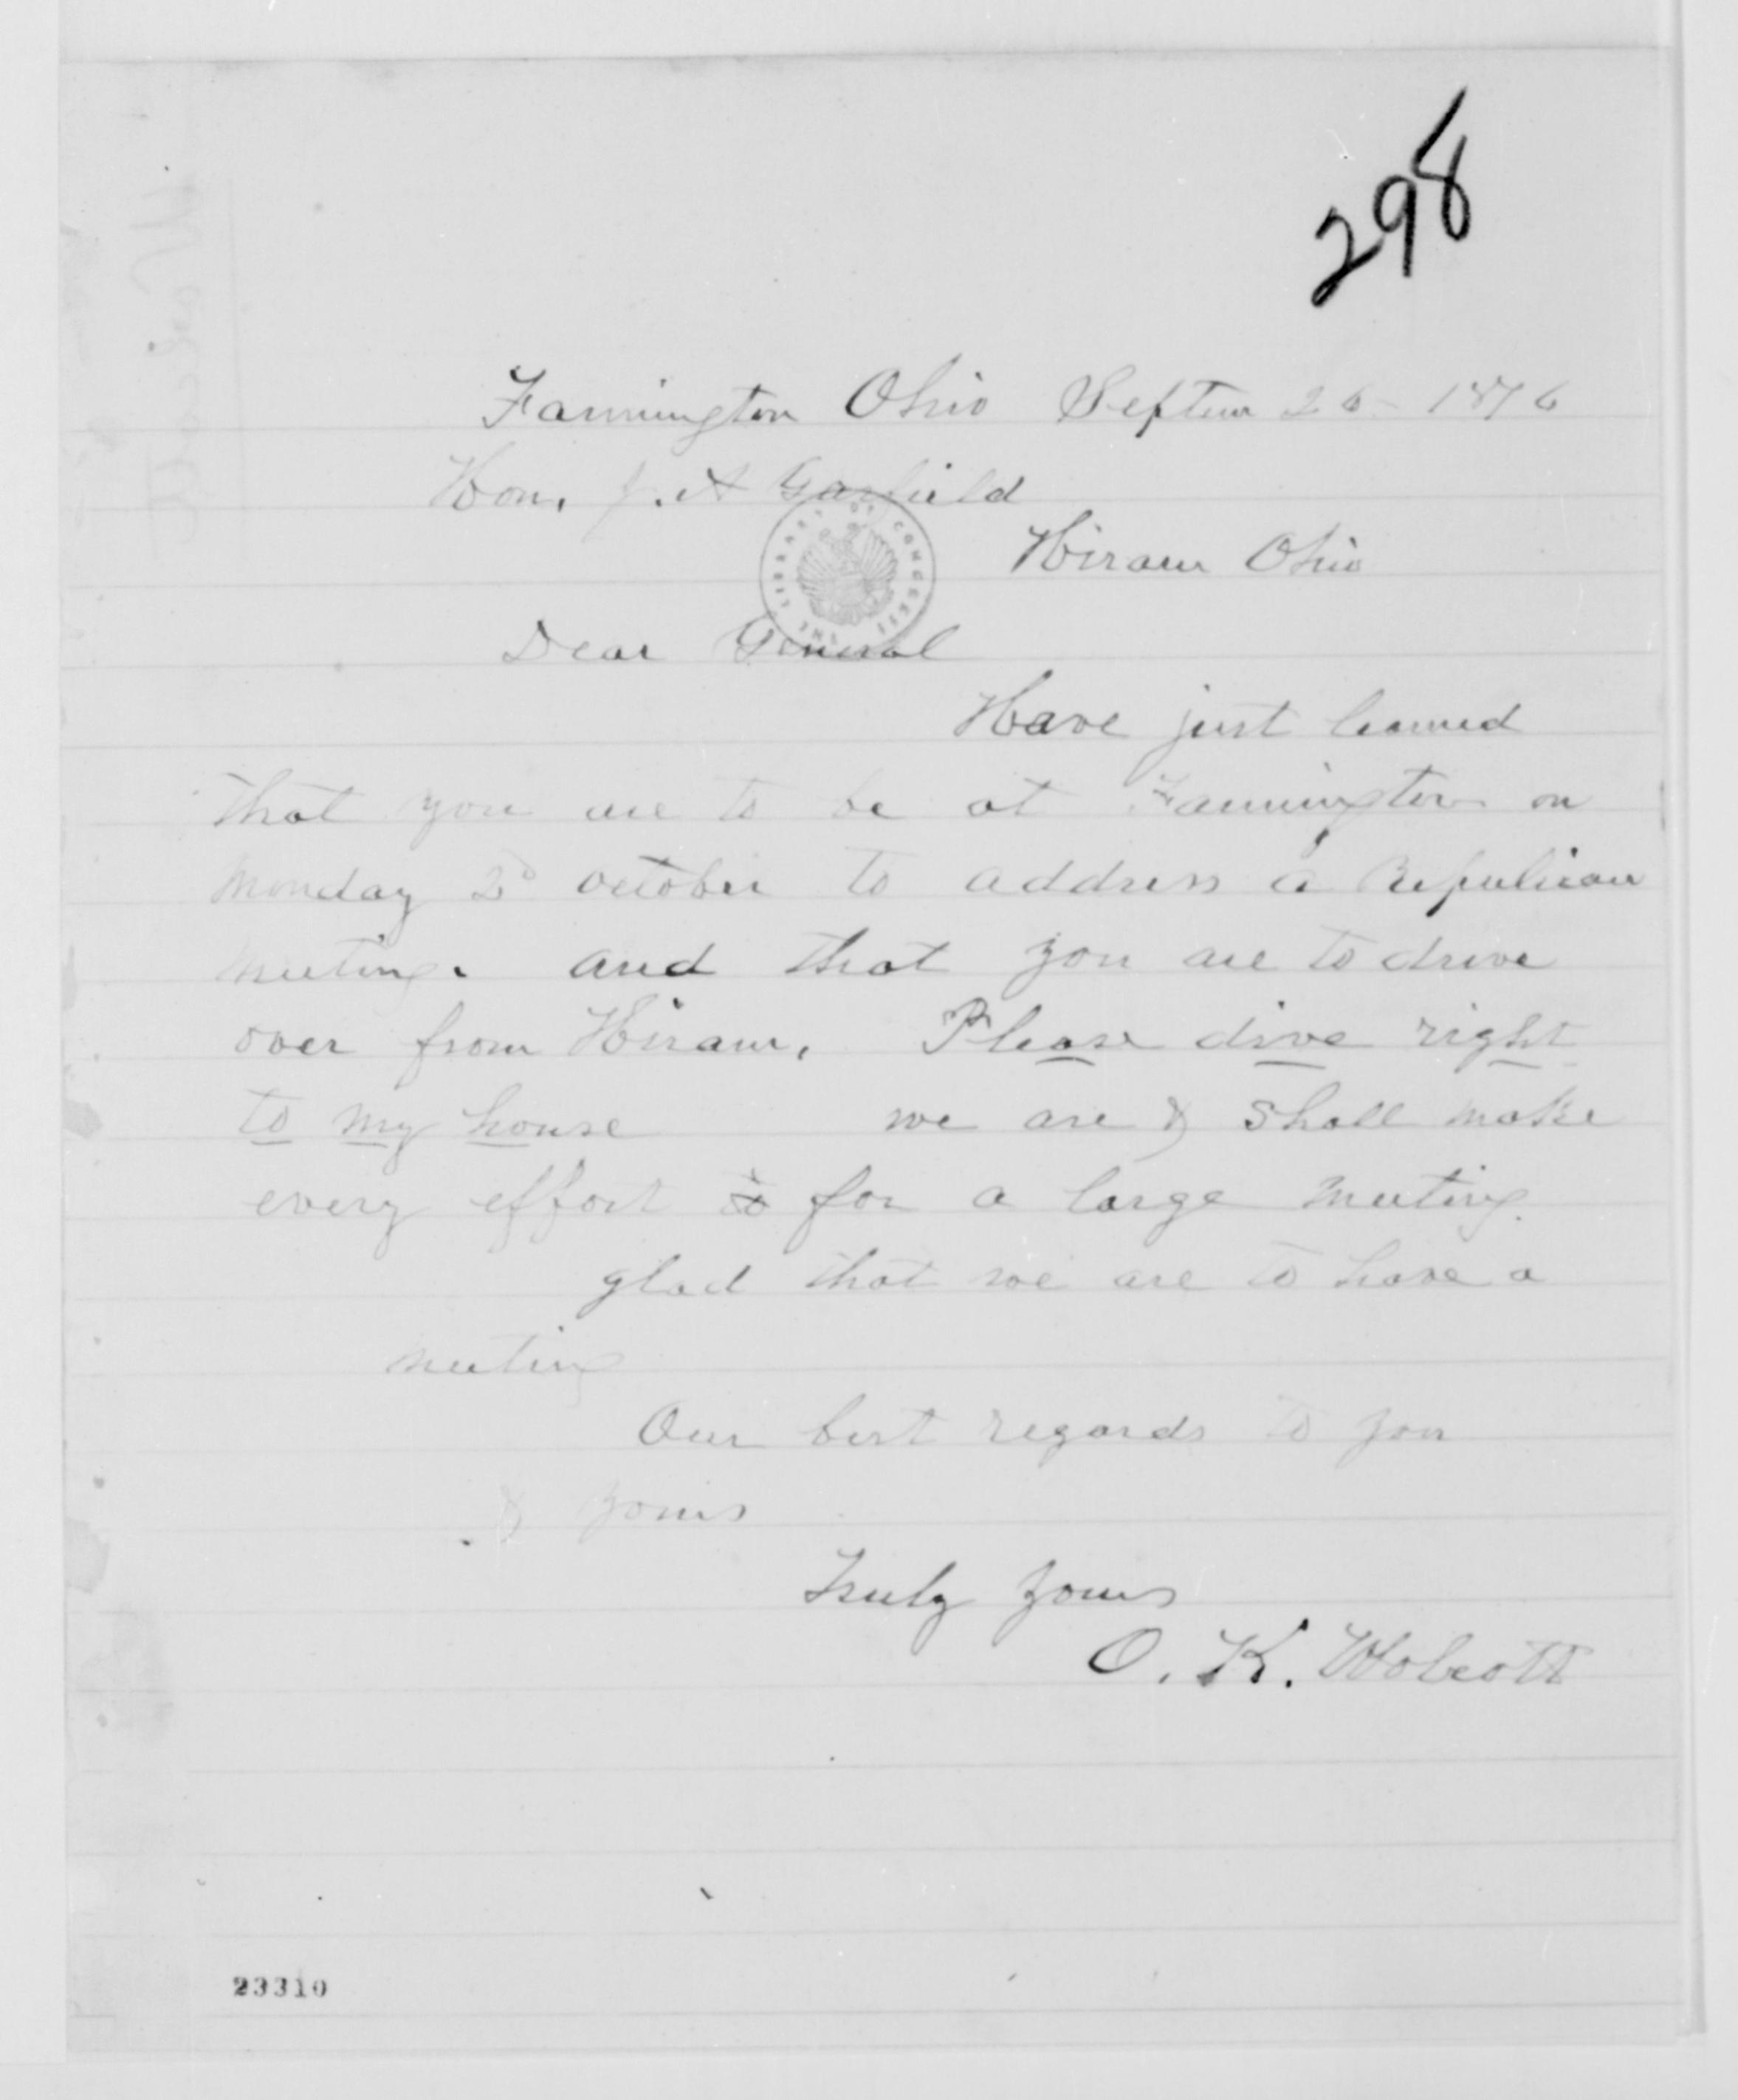 298
Farmington Ohio Septem 26 - 1876
Hon. J. A Garfield
THE LIBRARY OF CONGRESS
Hiram Ohio
Dear General
Have just learned
that you are to be at Farmington on
monday 2d october to address a Repulican
meeting. and that you are to drive
over from Hiram. Please drive right
to my house we are & shall make
every effort to for a large meeting.
glad that we are to have a
meeting
Our best regards to you
& yours
Truly yours
O. K. Wolcott
23310